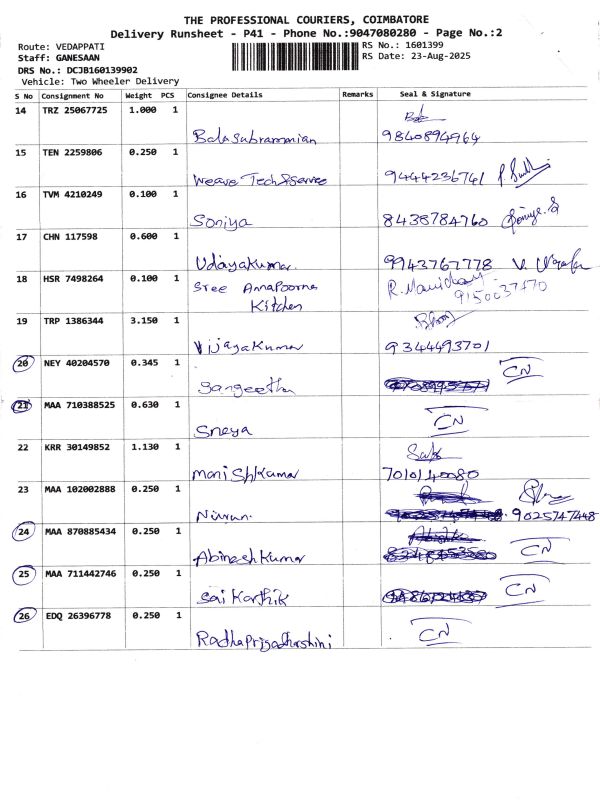 THE PROFESSIONAL COURIERS, COIMBATORE
Delivery Runsheet - P41 - Phone No.:9047080280 - Page No.:2
Route: VEDAPPATI
RS No.: 1601399
Staff: GANESAAN
RS Date: 23-Aug-2025
DRS No.: DCJB160139902
Vehicle: Two Wheeler Delivery
S No Consignment No Weight PCS Consignee Details Remarks Seal & Signature
14 TRZ 25067725 1.000 1
Balasubramanian 9840894964
15 TEN 2259806 0.250 1
Weave Tech & Service 9444236741
16 TVM 4210249 0.100 1
Soniya 8438784760 Soniya.S
17 CHN 117598 0.600 1
Udayakumar. 9943767778
18 HSR 7498264 0.100 1 Sree Annapoorna
Kitchen
19 TRP 1386344 3.150 1
Vijayakumar 9344493701
20 NEY 40204570 0.345 1 CN
Sangeetha
21 MAA 710388525 0.630 1 CN
Sneya
22 KRR 30149852 1.130 1
Manishkumar 7010140080
23 MAA 102002888 0.250 1
9025747448
24 MAA 870885434 0.250 1
Abineshkumar CN
25 MAA 711442746 0.250 1
Sai Karthik CN
26 EDQ 26396778 0.250 1
Radhapriyadharshini CN